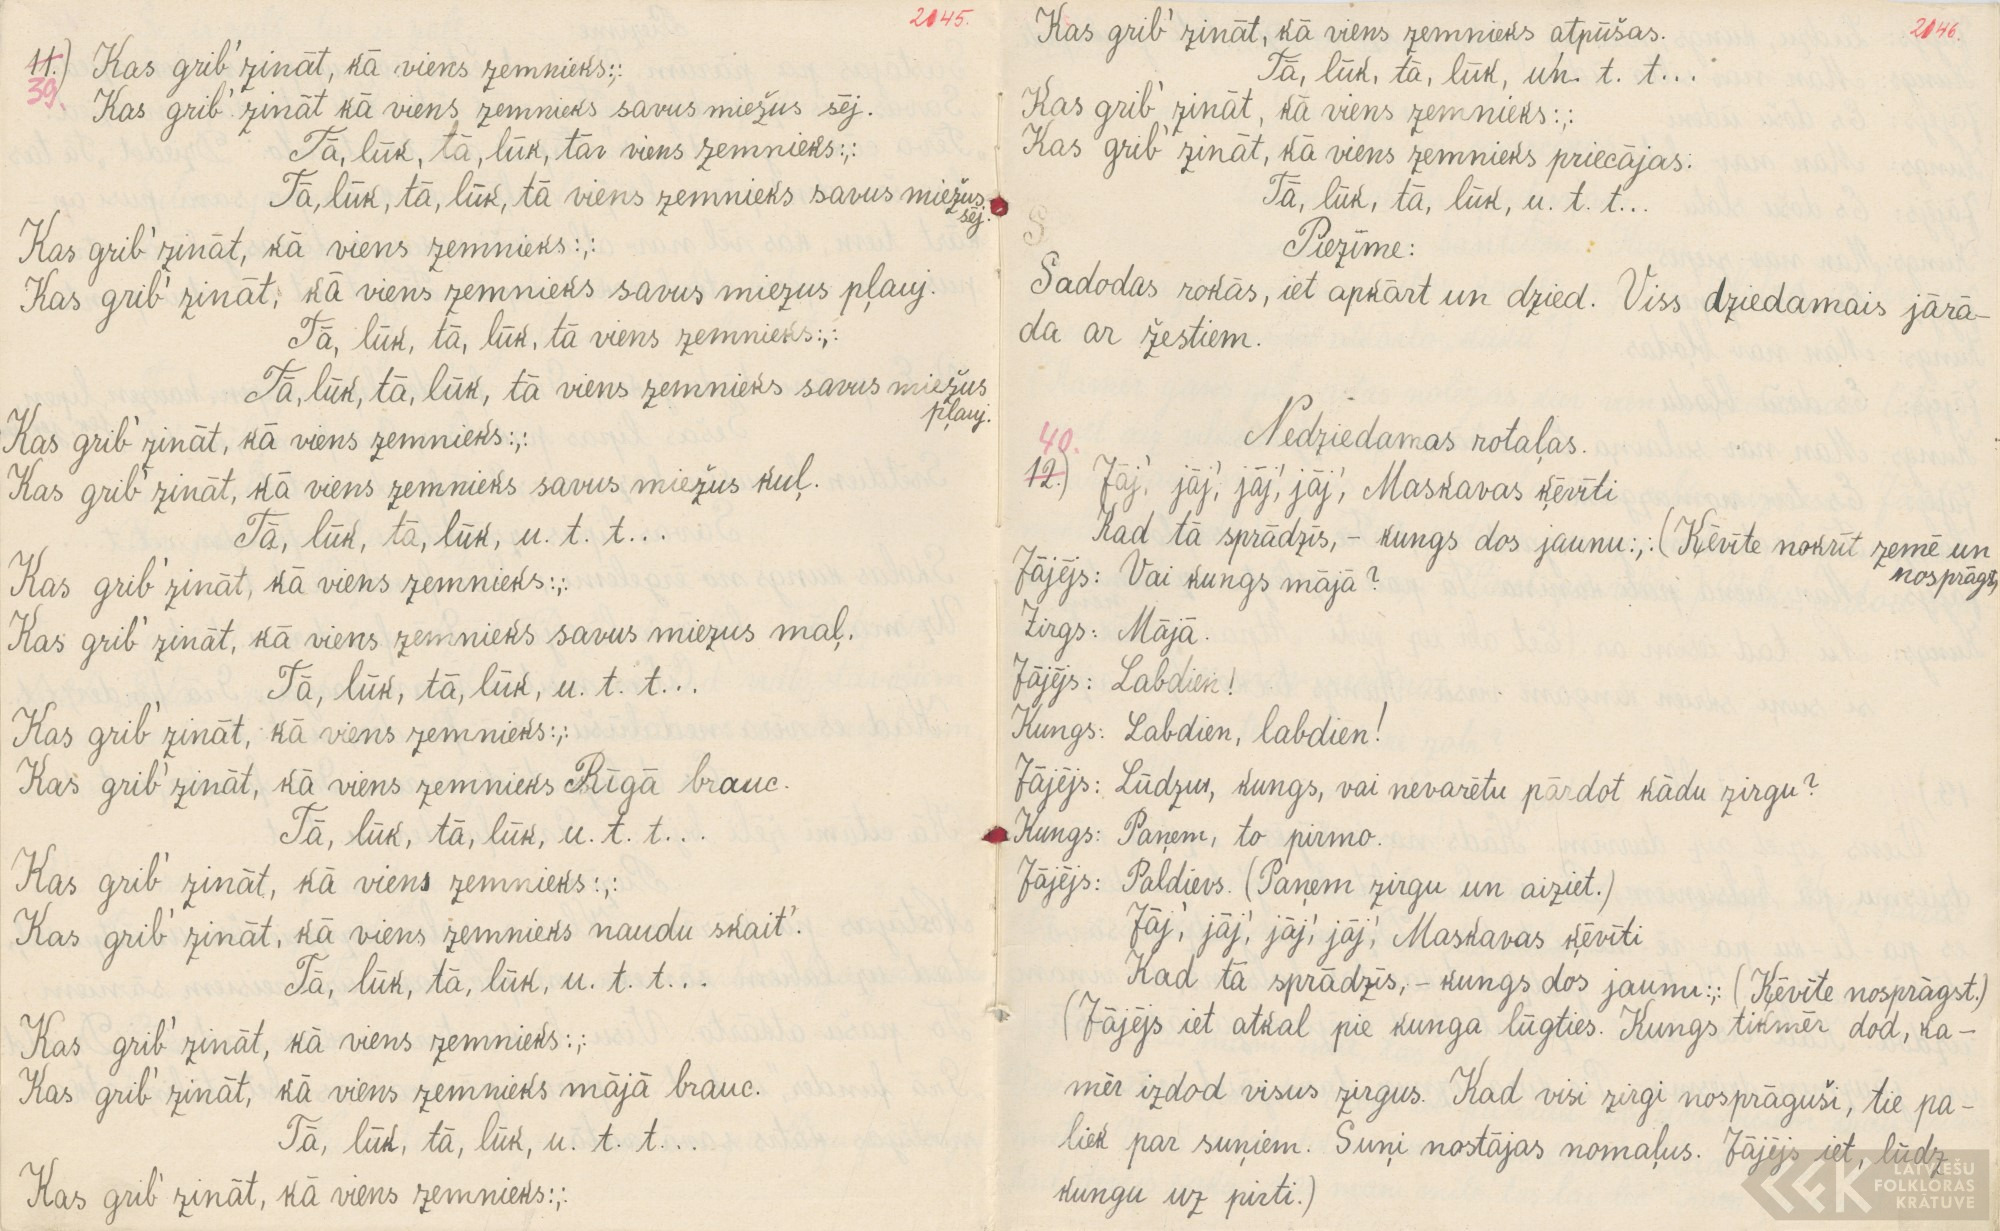 2045.
11.) Kas grib' zināt, kā viens zemnieks:,:
39.
Kas grib' zināt kā viens zemnieks savus miežus sēj.
Tā, lūk, tā, lūk, tā viens zemnieks:,:
Tā, lūk, tā, lūk, tā viens zemnieks savus miežus
sēj.
Kas grib' zināt, kā viens zemnieks:,:
Kas grib' zināt, kā viens zemnieks savus miezus pļauj.
Tā, lūk, tā, lūk, tā viens zemnieks:,:
Tā, lūk, tā, lūk, tā viens zemnieks savus miežus
pļauj.
Kas grib' zināt, kā viens zemnieks:,:
Kas grib' zināt, kā viens zemnieks savus miežus kuļ.
Tā, lūk, tā, lūk, u. t. t...
Kas grib' zināt, kā viens zemnieks:,:
Kas grib' zināt, kā viens zemnieks savus miezus maļ.
Tā, lūk, tā, lūk, u. t. t...
Kas grib' zināt, kā viens zemnieks:,:
Kas grib' zināt, kā viens zemnieks Rīgā brauc.
Tā, lūk, tā, lūk, u. t. t...
Kas grib' zināt, kā viens zemnieks:,:
Kas grib' zināt, kā viens zemnieks naudu skait'.
Tā, lūk, tā, lūk, u. t. t...
Kas grib' zināt, kā viens zemnieks:,:
Kas grib' zināt, kā viens zemnieks mājā brauc.
Tā, lūk, tā, lūk, u. t. t...
Kas grib' zināt, kā viens zemnieks:,:
2046.
Kas grib' zināt, kā viens zemnieks atpūšas.
Tā, lūk, tā, lūk, u. t. t...
Kas grib' zināt, kā viens zemnieks:,:
Kas grib' zināt, kā viens zemnieks priecājas:
Tā, lūk, tā, lūk, u. t. t...
Piezīme:
Sadodas rokās, iet apkārt un dzied. Viss dziedamais jārā-
da ar žestiem.
Nedziedamas rotaļas.
40.
12.) Jāj', jāj', jāj', jāj', Maskavas ķēvīti
Kad tā sprādzīs, - kungs dos jaunu:,: (Ķēvīte nokrīt zemē un
nosprāgst)
Jājējs: Vai kungs mājā?
Zirgs: Mājā.
Jājējs: Labdien!
Kungs: Labdien, labdien!
Jājējs: Lūdzu, kungs, vai nevarētu pārdot kādu zirgu?
Kungs: Paņem, to pirmo.
Jājējs: Paldievs. (Paņem zirgu un aiziet.)
Jāj', jāj', jāj', jāj', Maskavas ķēvīti
Kad tā sprādzīs, - kungs dos jaunu:,: (Ķēvīte nosprāgst.)
(Jājējs iet atkal pie kunga lūgties. Kungs tikmēr dod, ka-
mēr izdod visus zirgus. Kad visi zirgi nosprāguši, tie pa-
liek par suņiem. Suņi nostājas nomaļus. Jājējs iet, lūdz
kungu uz pirti.)
LFK LATVIEŠU
FOLKLORAS
KRĀTUVE